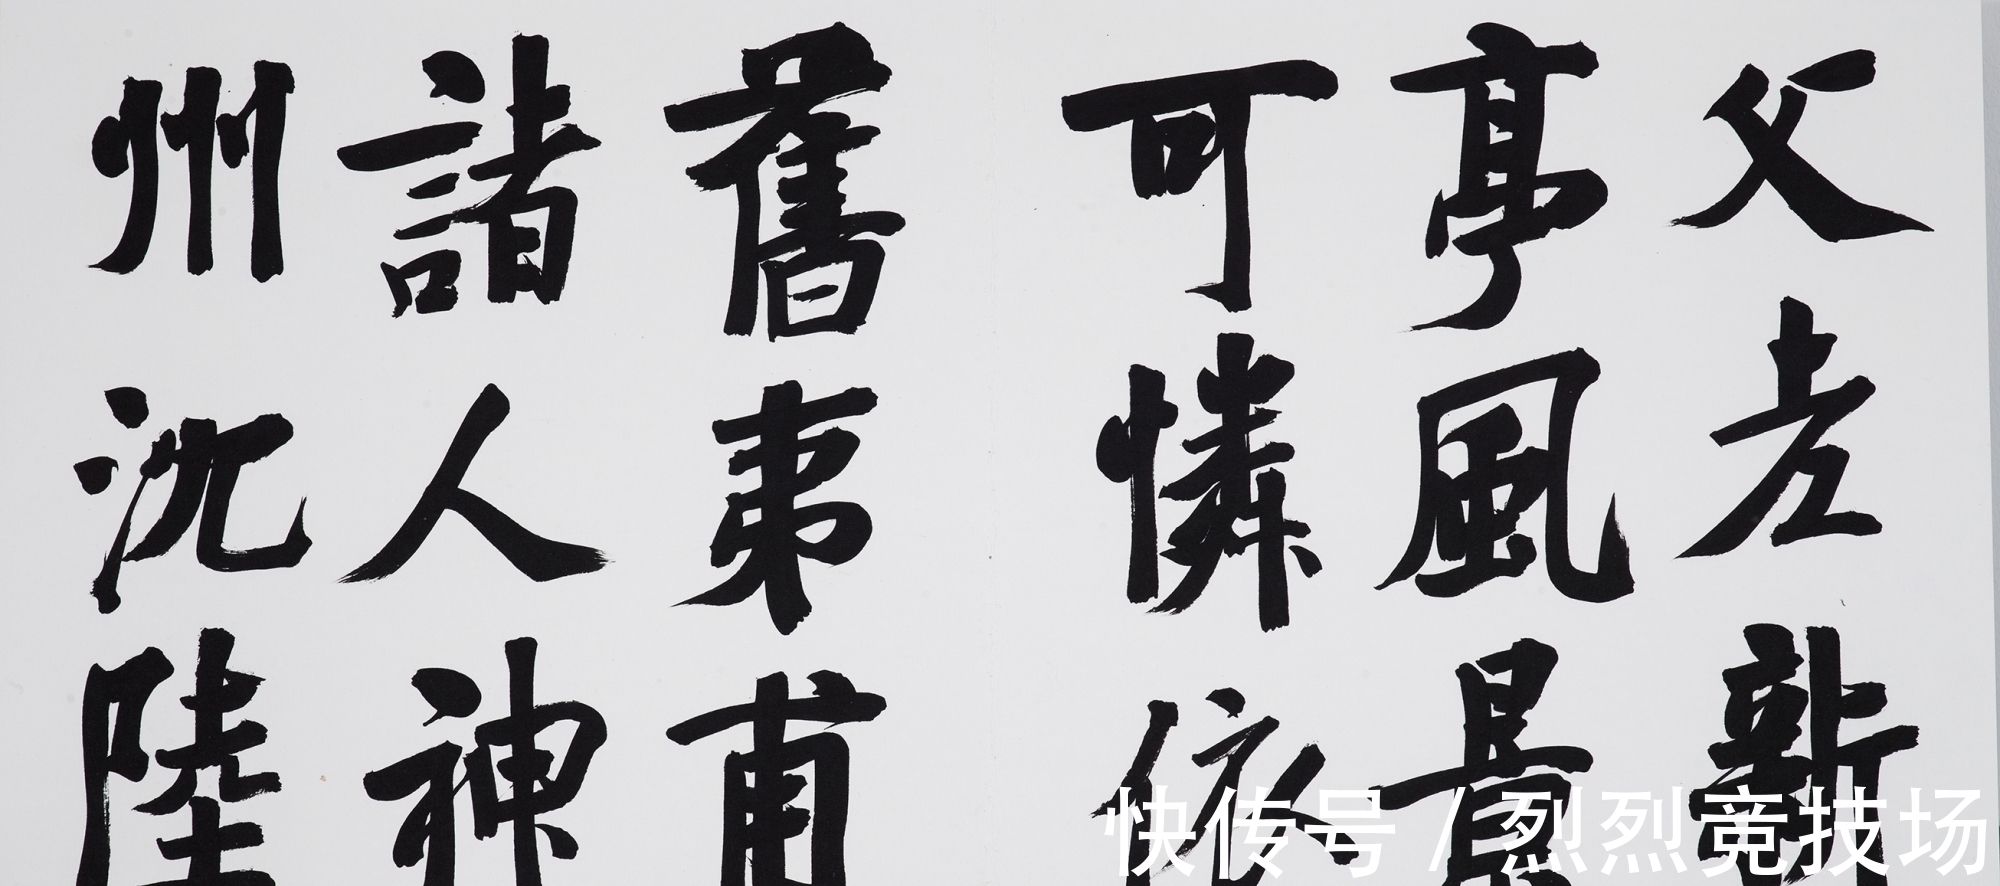 父老新
亭風景
可憐依
舊夷甫
諸人神
州沈陸
快传号 / 烈烈竞技场